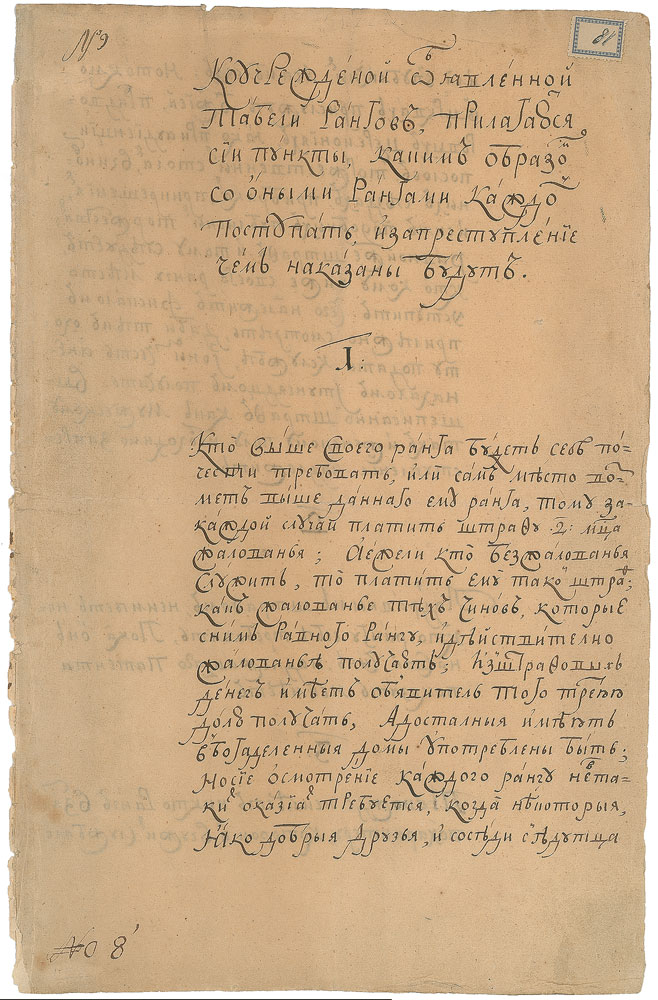 № 9
81
Коучреждѣной въявлѣнной
табели рангов, прилагаются
сіи пункты, каким образо
со оными рангами каждо
поступать, и за преступлѣніе
чемъ наказаны будутъ.
1:
Кто выше своего ранга будетъ себѣ по=
чести требовать, или самъ мѣсто воз
метъ выше даннаго ему ранга, тому за
каждой случай платить штраѳу .2: мца
жалованья; Аежели кто безжалованья
служитъ, то платить ему тако штра;
какъ жалованье тѣхъ чиновъ, которые
снимъ равного рангу, идѣйствително
жалованье получаютъ; Изштраѳовыхъ
денегъ имѣетъ объявитель того третью
долю получать, Адосталныя имѣютъ
вбогаделенныя домы употреблены быть;
Носіе осмотрѣніе каждого рангу нѣвта=
ки оказія требуется, когда нѣкоторыя,
яко добрыя друзья, и сосѣди съѣдутца
№ 8